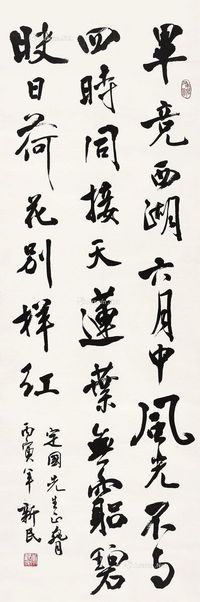 畢竟西湖六月中風光不与
四時同接天蓮葉無窮碧
映日荷花别樣红
定國先生正
丙寅年新民